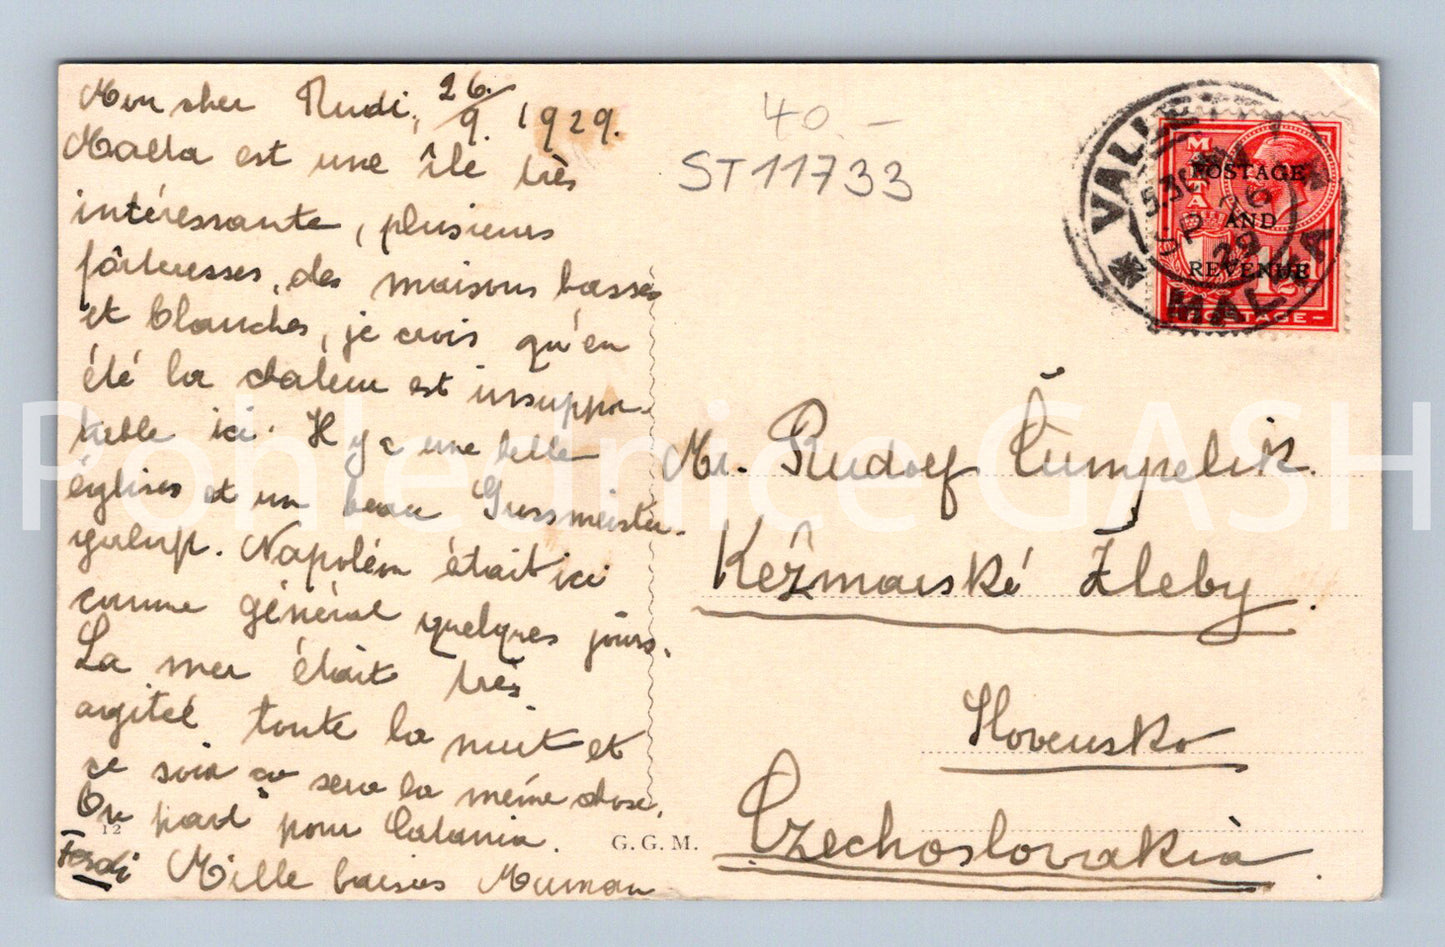 Mon cher Rudi, 26./9. 1929.
Malta est une île très
intéressante, plusieurs
forteresses, des maisons basses
et blanches, je crois qu'en
été la chaleur est insuppor-
table ici. Il y a une belle
églises et un beau Grossmeister-
Napoléon était ici
comme général quelques jours.
La mer était très
agiteé toute la nuit et
ce soir ça sera la même chose.
On part pour Catania.
Ferdi Mille baisers Muman
12
G. G. M.
40.-
ST11733
VALLETTA
5.30 PM
SP 26
29
MALTA
MALTA
POSTAGE
AND
REVENUE
1½
POSTAGE
Mr. Rudolf Čumpelik.
Kežmarské Žleby.
Slovensko
Czechoslovakia
Pohlednice GASH